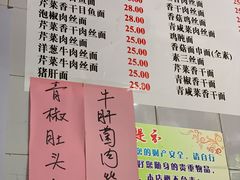 芹菜香干目鱼面 28.00
泡椒肉丝面 28.00
芹菜肉丝面 25.00
芹菜香干肉丝面 25.00
芹菜牛肉丝面 25.00
洋葱牛肉丝面 25.00
猪肝面 25.00
香菇肉丝面
青咸菜肉丝面
鸡脆面
香菇面巾面(全素)
素三丝面
芹菜香干面
青椒香干面
青咸菜香干面
青椒肚头
牛肝菌肉丝
您的财产安全,请自行
好您随身的贵重物品,